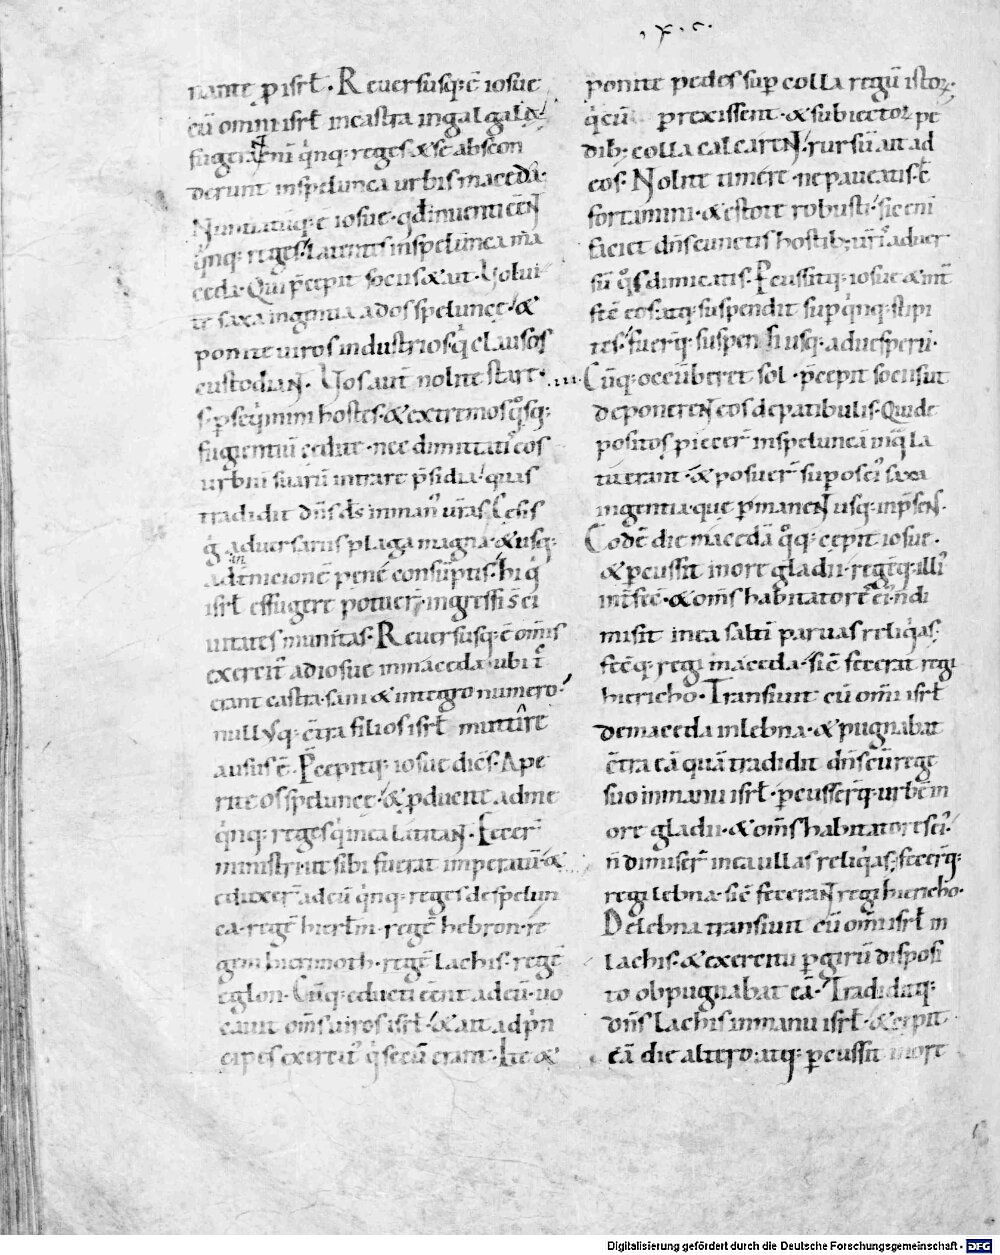 .x.c.
nante ꝑ isrł. Reuersusq; ē iosue
cū omni isrł incastra ingalgalę.
fugerāt eni qͥnq; reges & se abscon
derunt inspelunca urbis maceda.
Nuntiatūq; ē iosue. qd̄ inuenti eēnt
qͥnq; reges latentes inspelunca ma
ceda. Qui p̄cepit sociis & ait. Volui
te saxa ingentia ados spelunce. &
ponite uiros industrios. qͥ clausos
custodiant. Vos aut̄ nolite stare.
s; ꝑseqͥmini hostes. & extremos qͦsq;
fugientiū cedite. nec dimittatis eos
urbiū suarū intrare p̄sidia. quas
tradidit dn̄s ds̄ inman᷒ ur̄as. Cesis
gͦ aduersariis plaga magna. & usq;
ad int̄nicionē pene consūptis. hi qͥ
isrł effugere potuer̄. ingressi s̄ ci
uitates munitas. Reuersusq; ē om̄is
exercit᷒ ad iosue inmaceda. ubi tc̄
erant castra. sani & integro numero.
nullusq; cͣtra filios isrł muttire
ausus ē. P̄cepitq; iosue dicēs. Ape
rite os spelunce. & ꝓducite ad me
qͥnq; reges qͥ inea latitant. Fecer̄
ministri ut sibi fuerat imperatū. &
eduxer̄ ad eū qͥnq; reges de spelun
ca. regē hierłm. regē hebron. re
gem hierimoth. regē lachis. regē
eglon. Cūq; educti eēnt ad eū. uo
cauit om̄s uiros isrł. & ait ad p̄n
cipes exercit᷒ qͥ secū erant. Ite &
ponite pedes suꝑ colla regū istoꝝ.
qͥ cū ꝑrexissent. & subiectoꝝ pe
dib; colla calcarent. rursū ait ad
eos. Nolite timere. ne paueatis. c̄
fortamini. & estote robusti. sic eni
faciet dn̄s cunctis hostib; ur̄is aduer
sū qͦs dimicatis. Percussitq; iosue & int̄
fecͨ eos. atq; suspendit suꝑ qͥnq; stipi
tes. fuerq̄; suspensi usq; aduesperū.
Cūq; occūberet sol. p̄cepit sociis ut
deponerent eos de patibulis. Qui de
positos piecer̄ inspeluncā inqͣ la
tuerant. & posuer̄ suꝑ os ei᷒ saxa
ingentia. que ꝑmanent usq; inp̄sens.
Eodē die macedā qͦq; cepit iosue.
& ꝑcussit inore gladii. regēq; illi᷒
int̄fecͨ. & om̄s habitatores ei᷒. n̄ di
misit inea saltī paruas reliqͥas.
fecitq; regi maceda. sicͨ fecerat regi
hiericho. Transiuit cū omi isrł
de maceda inlebna. & pugnabat
cͣtra eā quā tradidit dn̄s cū rege
suo inmanu isrł. ꝑcusserq̄; urbē in
ore gladii. & om̄s habitatores ei᷒.
n̄ dimiser̄ inea ullas reliqͥas. fecerq̄;
regi lebna. sicͨ fecerant regi hiericho.
De lebna transiuit cū omi isrł in
lachis. & exercitu ꝑ girū disposi
to obpugnabat eā. Tradiditq;
dn̄s lachis inmanu isrł. & cepit
eā die altero. atq; ꝑcussit inore
Digitalisierung gefördert durch die Deutsche Forschungsgemeinschaft - DFG